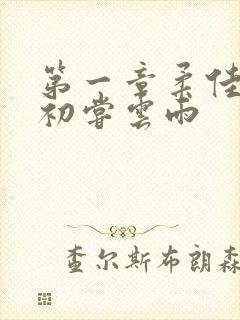 第一章柔佳
初嘗雲雨
查尔斯布朗森